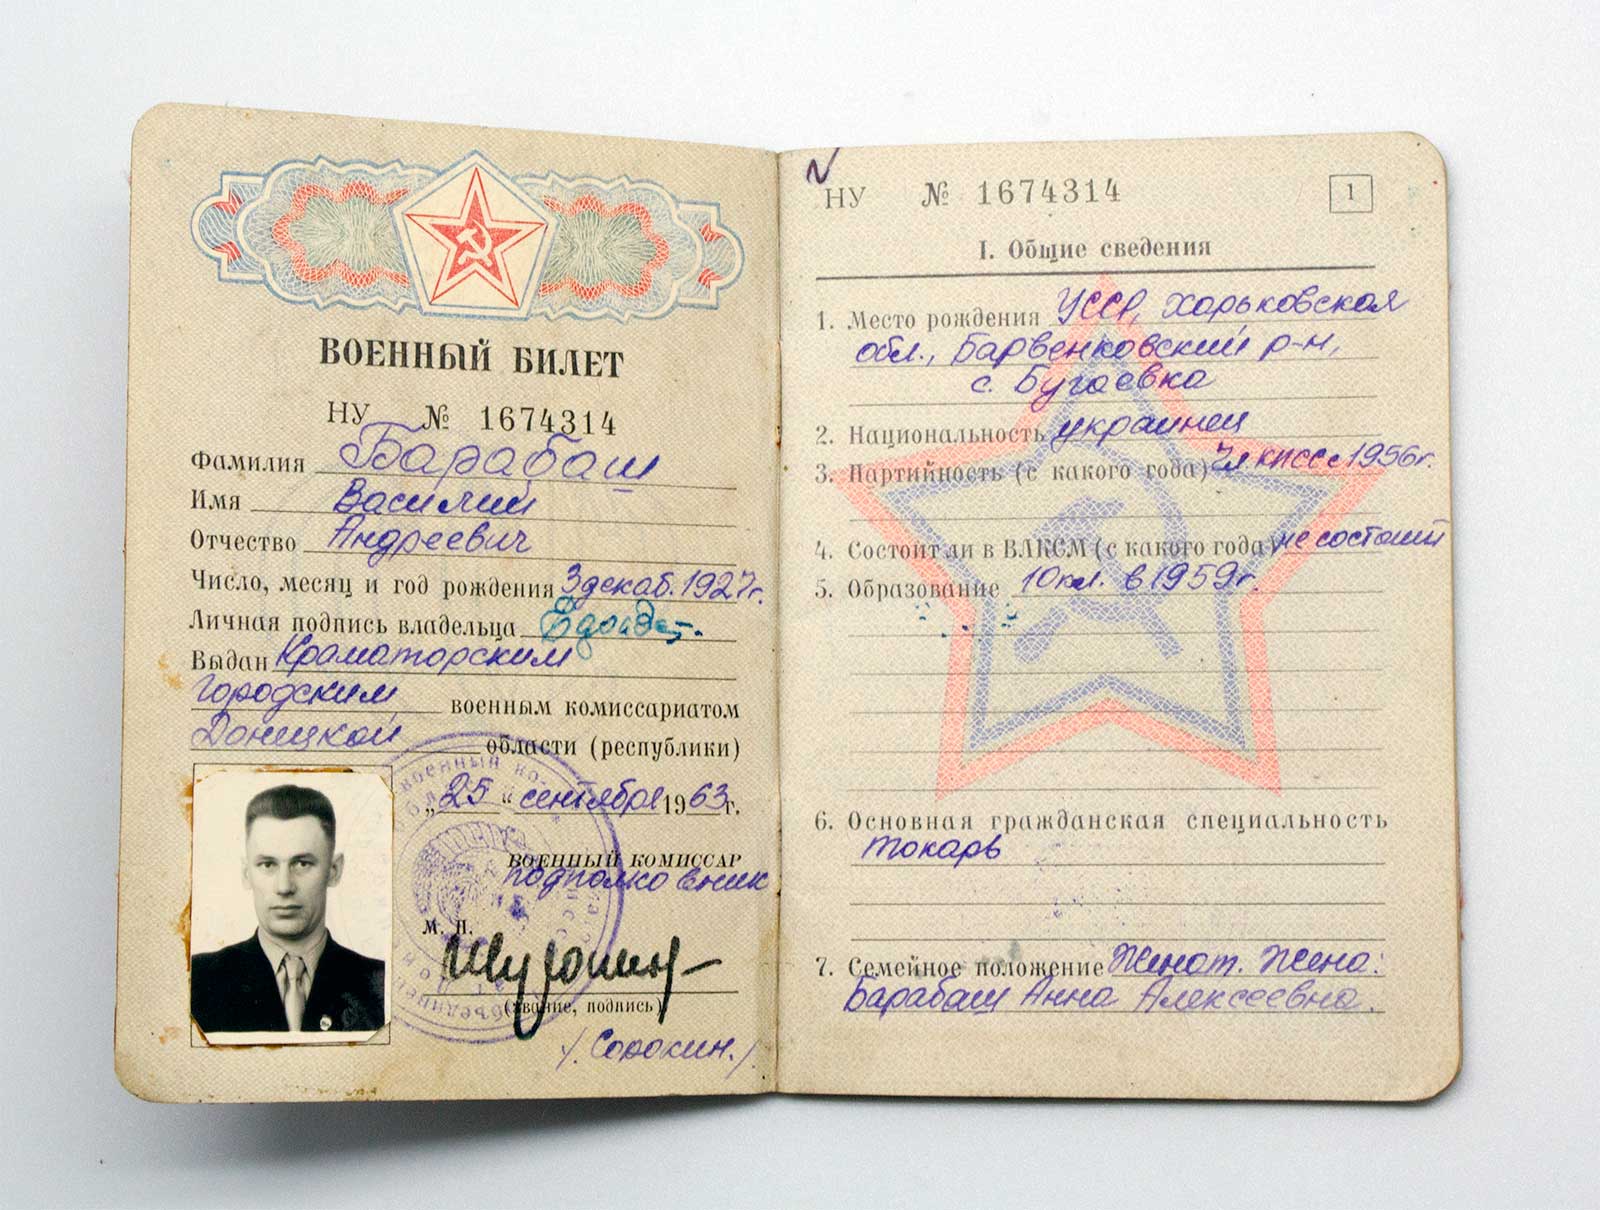 ВОЕННЫЙ БИЛЕТ
НУ № 1674314
Фамилия Барабаш
Имя Василий
Отчество Андреевич
Число, месяц и год рождения 3 декаб. 1927г.
Личная подпись владельца
Выдан Краматорским
городским военным комиссариатом
Донецкой области (республики)
„25“ сентября 1963 г.
ВОЕННЫЙ КОМИССАР
подполковник
М. П.
(звание, подпись)
/Сорокин./
НУ № 1674314
1
I. Общие сведения
1. Место рождения УССР, Харьковская
обл., Барвенковский р-н,
с. Бугаевка
2. Национальность украинец
3. Партийность (с какого года) чл КПСС с 1956г.
4. Состоит ли в ВЛКСМ (с какого года) не состоит
5. Образование 10 кл. в 1959г.
6. Основная гражданская специальность
токарь
7. Семейное положение Женат. Жена:
Барабаш Анна Алексеевна.